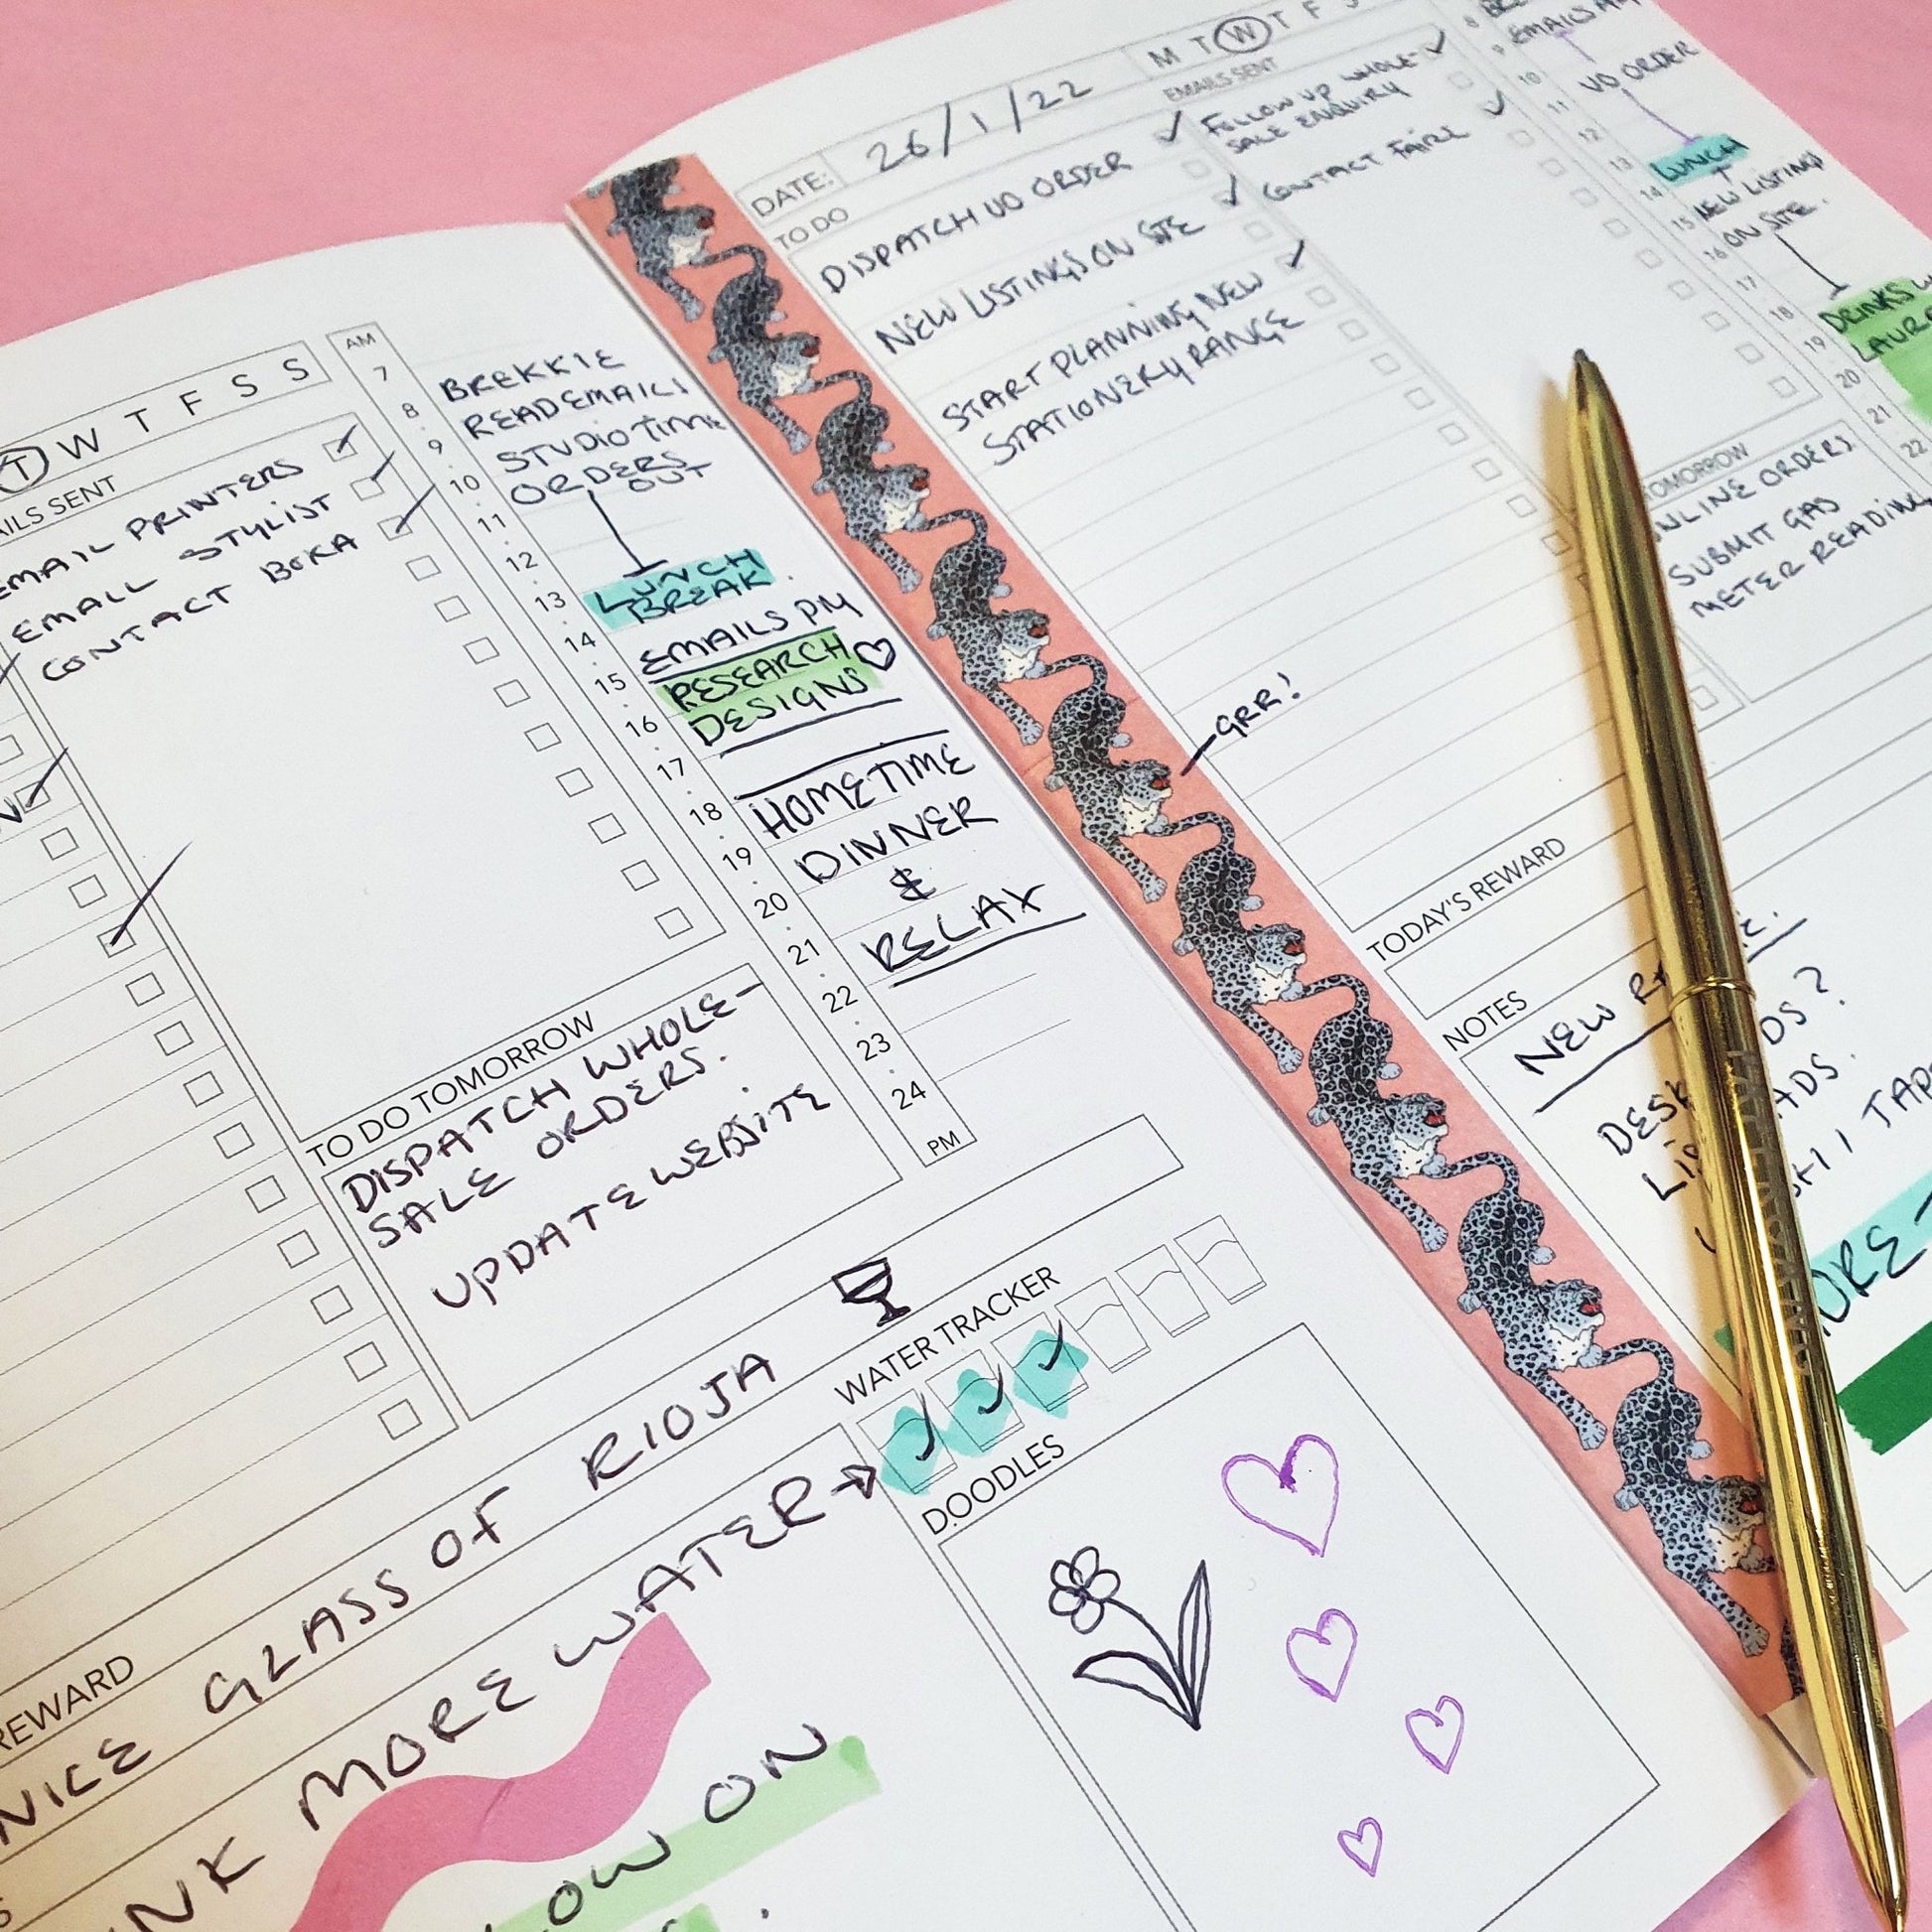 T W T F S S
EMAIL PRINTERS
EMAIL STYLIST
CONTACT BOKA
AM
7
8
9
10
11
12
13
14
15
16
17
18
19
20
21
22
23
24
PM
BREKKIE
READ EMAILS
STUDIO TIME
ORDERS
OUT
LUNCH
BREAK
EMAILS PM
RESEARCH
DESIGNS
HOMETIME
DINNER
&
RELAX
TO DO TOMORROW
DISPATCH WHOLE-
SALE ORDERS.
UPDATE WEBSITE
REWARD
NICE GLASS OF RIOJA
WATER TRACKER
MORE WATER
ON
DOODLES
DATE: 26/1/22
M T W T F S
TO DO
DISPATCH UO ORDER
NEW LISTINGS ON SITE
START PLANNING NEW
STATIONERY RANGE
EMAILS SENT
FOLLOW UP WHOLE-
SALE ENQUIRY
CONTACT FAIRE
8
9
10
11
12
13
14
15
16
17
18
19
20
21
22
UO ORDER
LUNCH
NEW LISTINGS
ON SITE.
DRINKS
LAURA
TOMORROW
ONLINE ORDERS
SUBMIT GAS
METER READING
GRR!
TODAY'S REWARD
NOTES
NEW